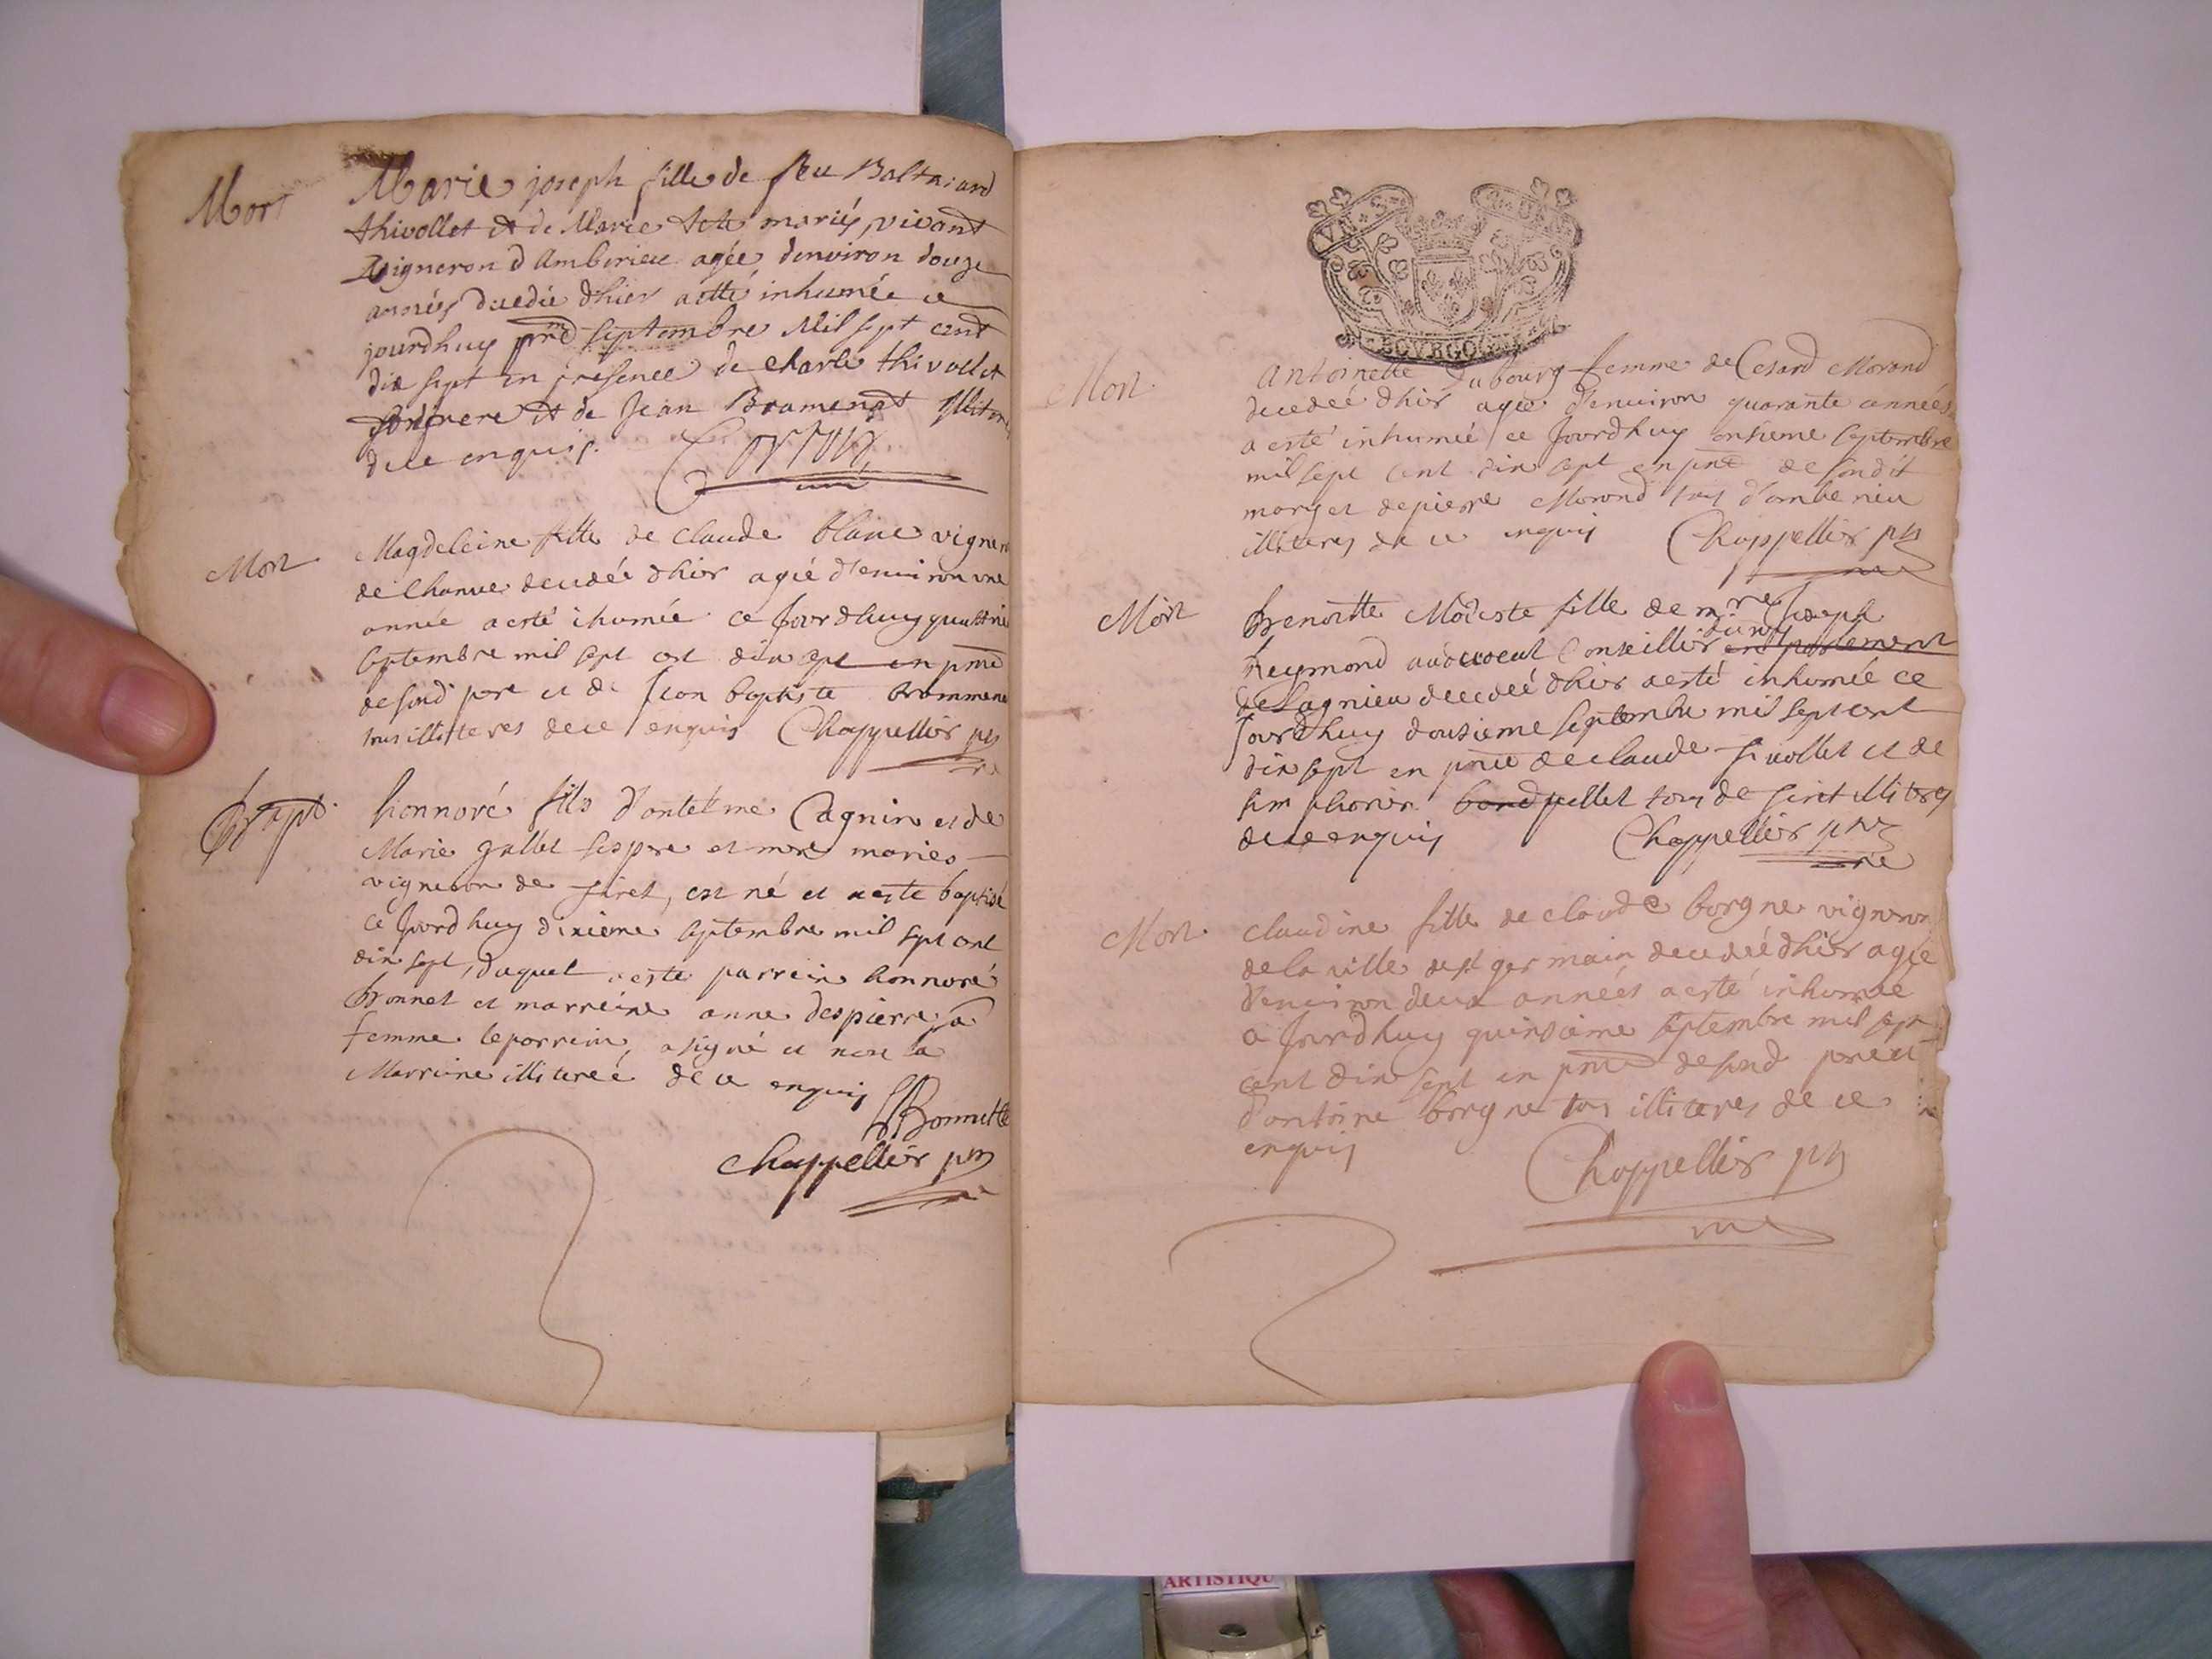 Mort
Marie joseph fille de feu Baltazard
thivollet et de Marie mariés, vivant
vigneron d'Amberieu agée denviron douze
années decedée dhier a esté inhumée ce
jourdhuy septembre Mil sept cent
dix sept en presence de charle thivollet
son frere et de Jean Bramenet illitérés
de ce enquis.
Mort
Magdeleine fille de claude blanc vigneron
de Chanve decedée dhier agée d'environ une
année a esté ihumée ce Jourdhuy quattrie
septembre mil sept cent dix sept en pnce
de sond pere et de Jean baptiste brammene
tous illiteres de ce enquis Chappellier ptre
Bapt
honnoré fils d'antelme Cagnin et de
Marie gallet ses pere et mere mariés
vigneron de tiret, est né et a esté baptisé
ce Jourdhuy dixième septembre mil sept cent
dix sept, duquel a esté parrein honnoré
bonnet et marreine anne despierre sa
femme le parrein, a signé et non la
Marreine illitereé de ce enquis
Bonnette
Chappellier ptre
BOVRGO
Mort
antoinette dubourg femme de Cesard Morand
decedeé dhier agée d'environ quarante années
a esté inhumeé ce Jourdhuy onsieme septembre
mil sept cent dix sept en pnce de sondit
mary et de pierre Morand tous d'amberieu
illiteres de ce enquis Chappellier ptre
Mort
benoitte Modeste fille de mre Joseph
Reymond advocat Conseillier en parlement
de Lagnieu decedeé dhier a esté inhumée ce
Jourdhuy dousieme septembre mil sept cent
dix sept en pnce de claude tivollet et de
simphorien bond pellet tous de tiret illiteres
de ce enquis Chappellier ptre
Mort
claudine fille de claude borgne vigneron
de la ville de st germain decedeé dhier agée
d'environ deux années a esté inhumée
a Jourdhuy quinsieme septembre mil sept
cent dix sept en pnce de sond pere et
d'antoine borgne tous illiteres de ce
enquis
Chappellier ptre
ARTISTIQU